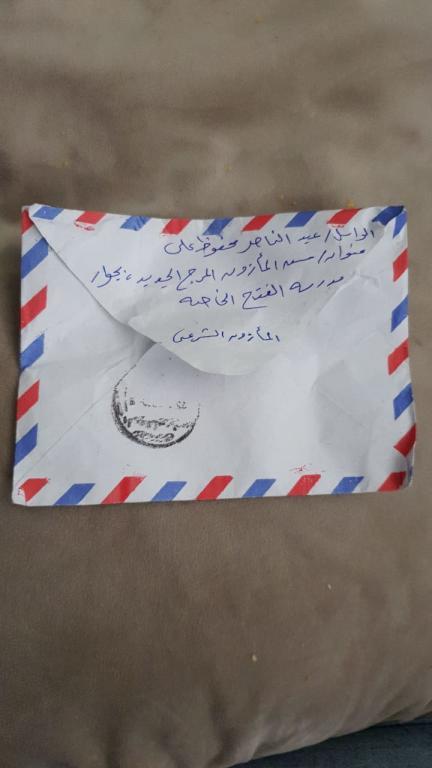 الراسل/ عبد الناصر محفوظ على
عنوان/ المأزون المرج الجديده بجوار
مدرسة الفتح الخاصه
المأزون الشرعى